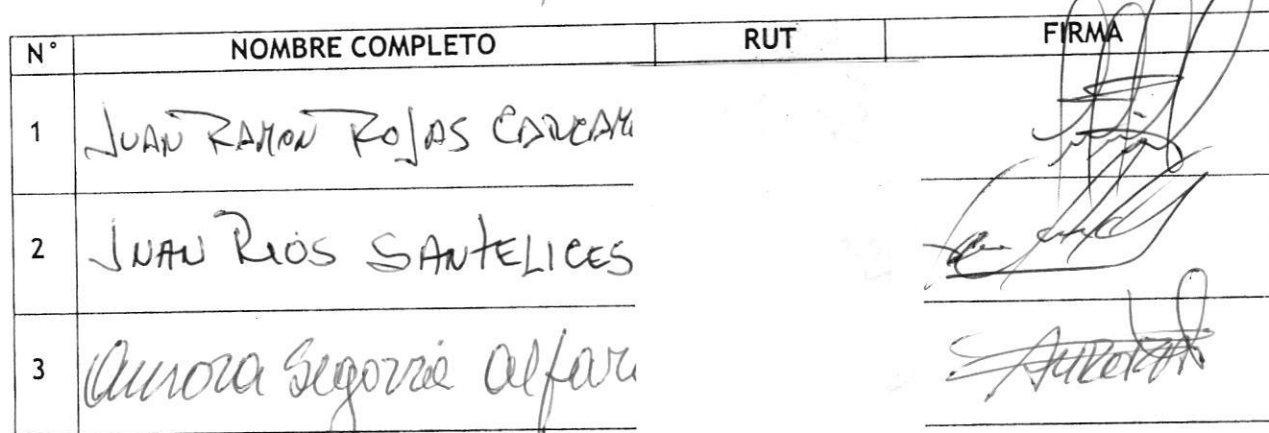 N° NOMBRE COMPLETO RUT FIRMA
1 JUAN RAMON ROJAS CARCAM
2 JUAN RIOS SANTELICES
3 Aurora Segovia Alfaro